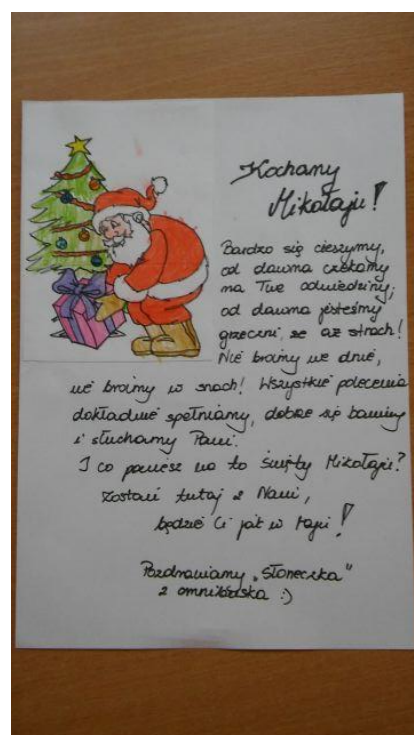 Kochany
Mikołaju!
Bardzo się cieszymy,
od dawna czekamy
na Twe odwiedziny;
od dawna jesteśmy
grzeczni, że aż strach!
Nie broimy we dnie,
nie broimy w snach! Wszystkie polecenia
dokładnie spełniamy, dobrze się bawimy
i słuchamy Pani.
I co powiesz na to Święty Mikołaju?
Zostań tutaj z Nami,
będzie Ci jak w raju!
Pozdrawiamy "Słoneczka"
z omnibuska :)